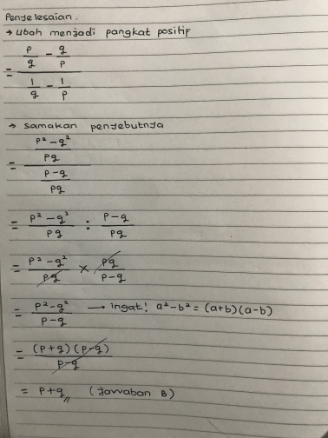 Penyelesaian.
→ ubah menjadi pangkat positif
= (p/q - q/p) / (1/q - 1/p)
→ samakan penyebutnya
= ((p² - q²)/pq) / ((p - q)/pq)
= (p² - q²)/pq : (p - q)/pq
= (p² - q²)/pq × pq/(p - q)
= (p² - q²)/(p - q) → ingat! a² - b² = (a+b)(a-b)
= (p+q)(p-q)/(p-q)
= p+q,, (Jawaban B)